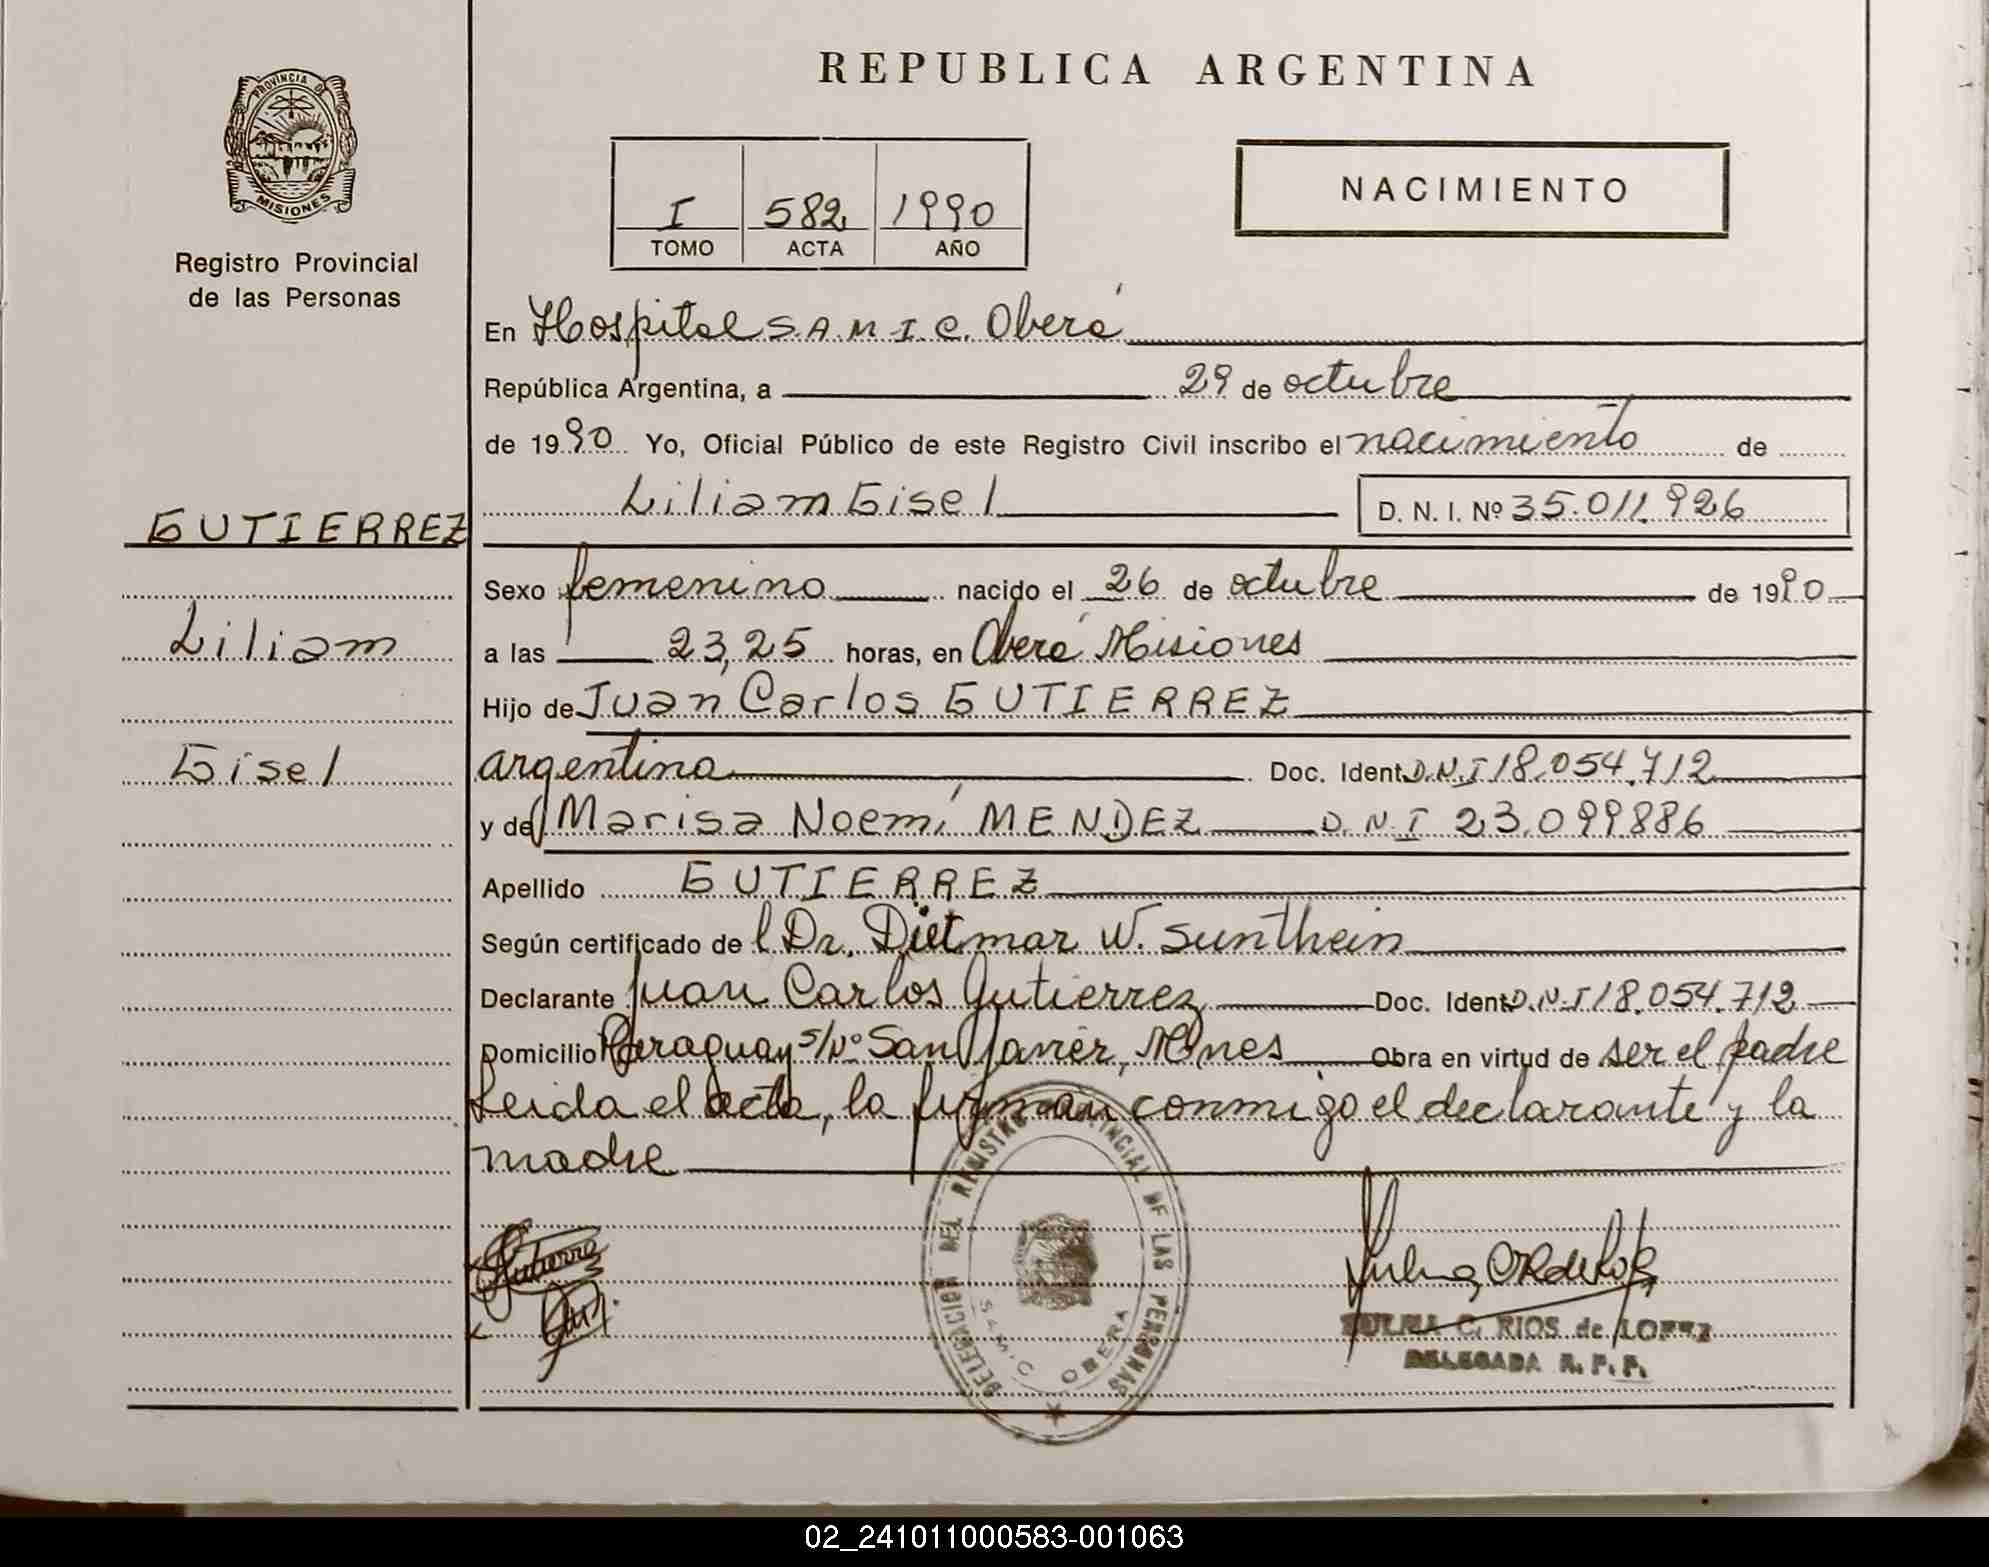 PROVINCIA D
MISIONES
Registro Provincial
de las Personas
GUTIERREZ
Liliam
Gisel
REPUBLICA ARGENTINA
I 582 1990
TOMO ACTA AÑO
NACIMIENTO
En Hospital S.A.M.I.C. Oberá
República Argentina, a 29 de octubre
de 1990 Yo, Oficial Público de este Registro Civil inscribo el nacimiento de
Liliam Gisel D. N. I. Nº 35.011.926
Sexo femenino nacido el 26 de octubre de 1990
a las 23,25 horas, en Oberá Misiones
Hijo de Juan Carlos GUTIERREZ
argentina Doc. Ident. D.N.I 18.054.712
y de Marisa Noemí MENDEZ D.N.I 23.099886
Apellido GUTIERREZ
Según certificado de l Dr. Dietmar W. Sunthein
Declarante Juan Carlos Gutierrez Doc. Ident. D.N.I 18.054.712
Domicilio Paraguay s/Nº San Javier, Mnes Obra en virtud de ser el padre
Leida el acta, la firman conmigo el declarante y la
madre
DELEGACION DEL REGISTRO PROVINCIAL DE LAS PERSONAS
S.A.M.I.C OBERA
ZULMA C. RIOS de LOPEZ
DELEGADA R. P. P.
02_241011000583-001063